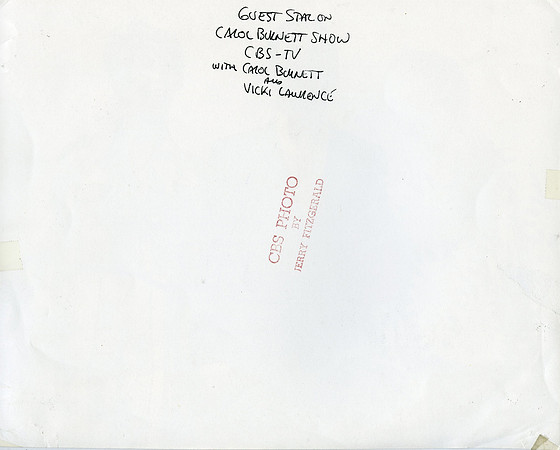 GUEST STAR ON
CAROL BURNETT SHOW
CBS-TV
WITH CAROL BURNETT
AND
VICKI LAWRENCE
CBS PHOTO
BY
JERRY FITZGERALD